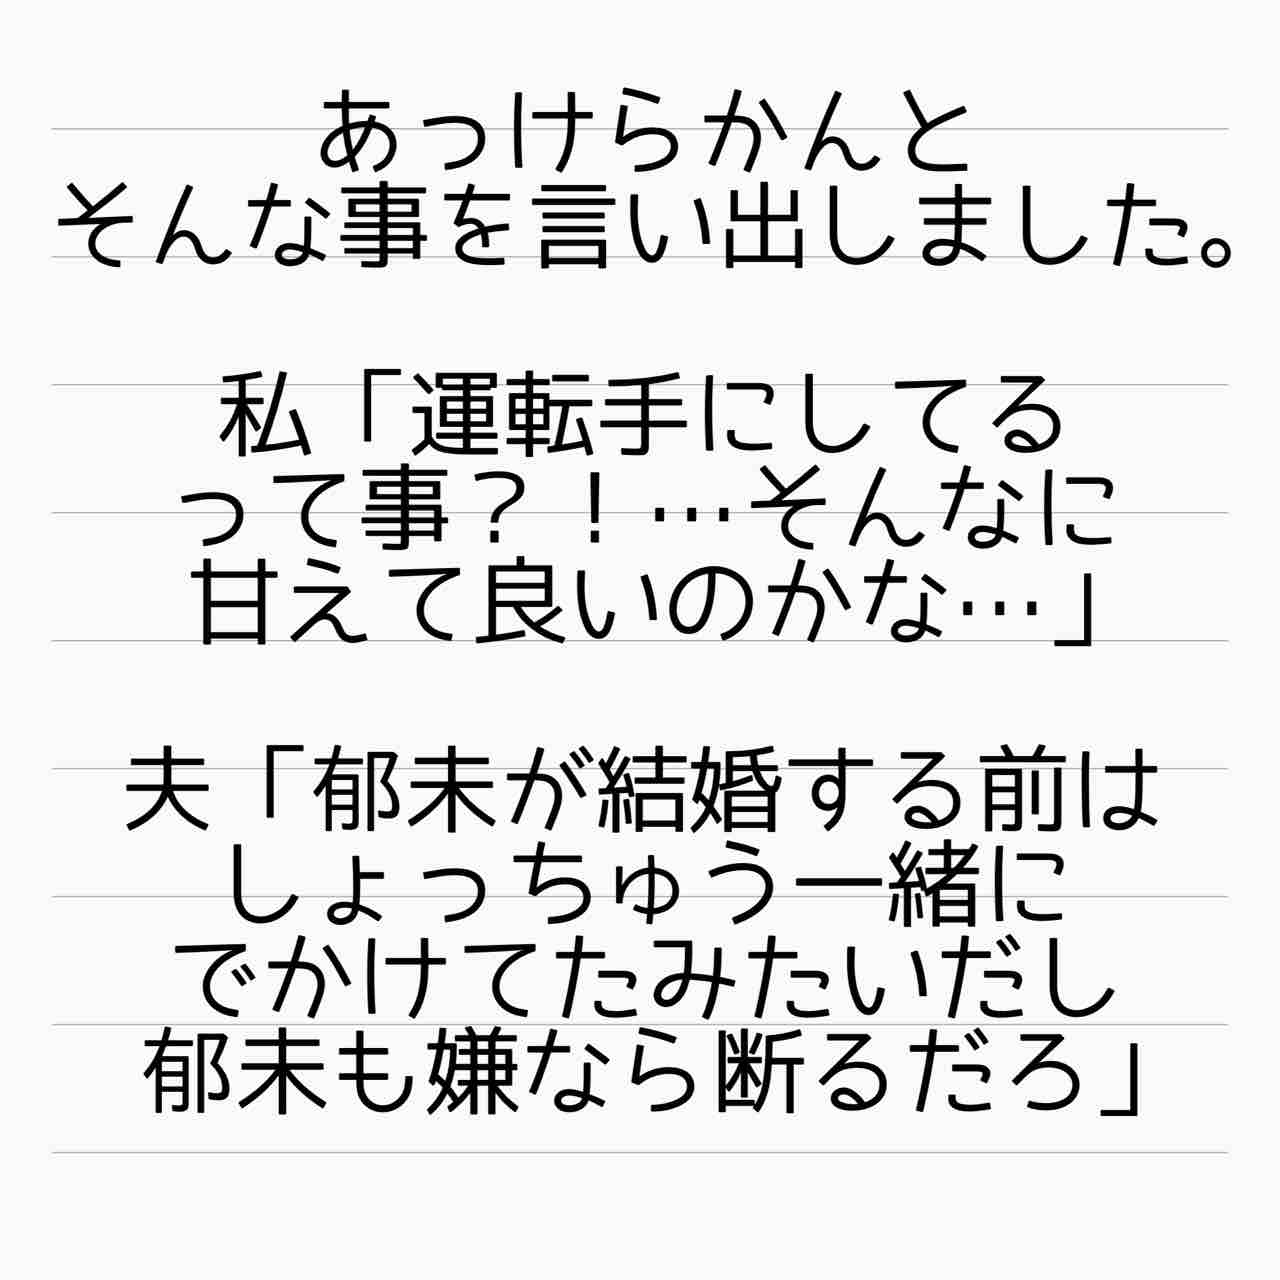 あっけらかんと
そんな事を言い出しました。
私「運転手にしてる
って事？！…そんなに
甘えて良いのかな…」
夫「郁未が結婚する前は
しょっちゅう一緒に
でかけてたみたいだし
郁未も嫌なら断るだろ」